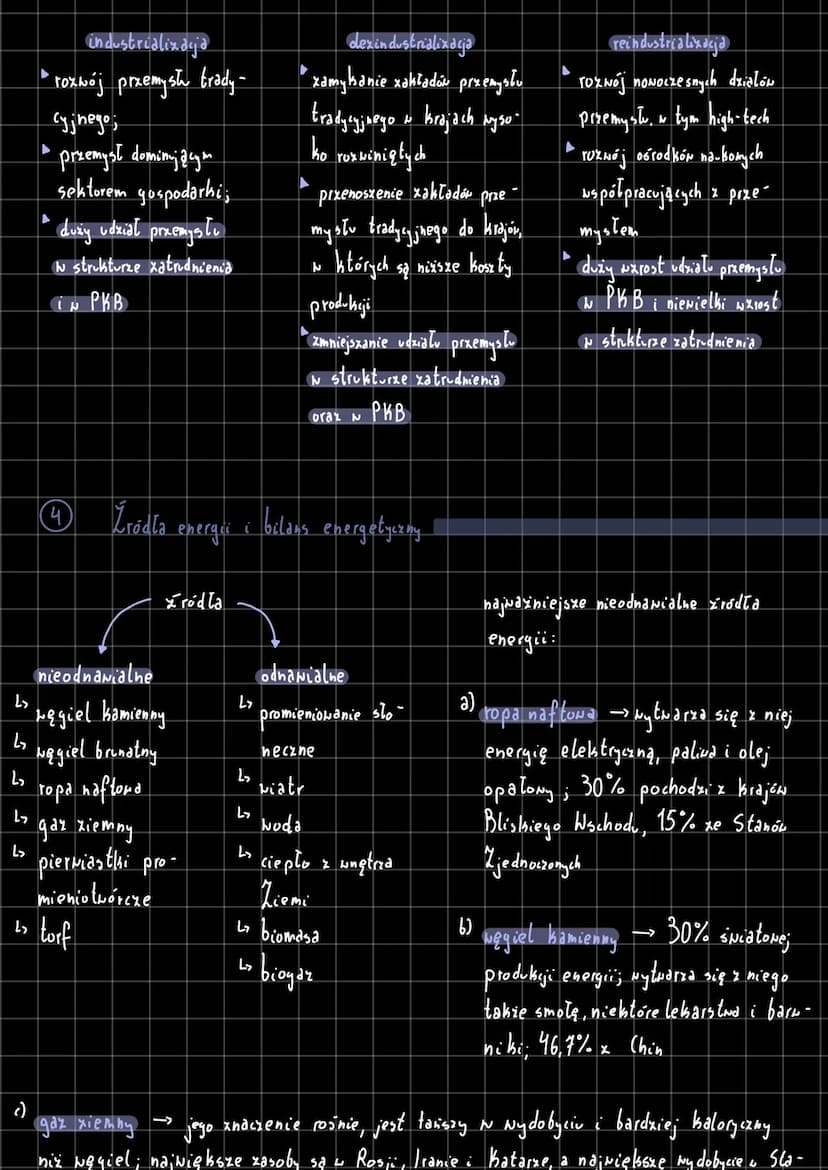 industrializacja
rozwój przemysłu trady-
cyjnego;
przemysł dominującym
sektorem gospodarki;
duży udział przemysłu
w strukturze zatrudnienia
i w PKB
dezindustrializacja
zamykanie zakładów przemysłu
tradycyjnego w krajach wyso-
ko rozwiniętych
przenoszenie zakładów prze-
mysłu tradycyjnego do krajów,
w których są niższe koszty
produkcji
zmniejszanie udziału przemysłu
w strukturze zatrudnienia
oraz w PKB
reindustrializacja
rozwój nowoczesnych działów
przemysłu, w tym high-tech
rozwój ośrodków naukowych
współpracujących z prze-
mysłem
duży wzrost udziału przemysłu
w PKB i niewielki wzrost
w strukturze zatrudnienia
4 Źródła energii i bilans energetyczny
źródła
nieodnawialne
↳ węgiel kamienny
↳ węgiel brunatny
↳ ropa naftowa
↳ gaz ziemny
↳ pierwiastki pro-
mieniotwórcze
↳ torf
odnawialne
↳ promieniowanie sło-
neczne
↳ wiatr
↳ woda
↳ ciepło z wnętrza
Ziemi
↳ biomasa
↳ biogaz
najważniejsze nieodnawialne źródła
energii:
a) ropa naftowa → wytwarza się z niej
energię elektryczną, paliwa i olej
opałowy; 30% pochodzi z krajów
Bliskiego Wschodu, 15% ze Stanów
Zjednoczonych
b) węgiel kamienny → 30% światowej
produkcji energii; wytwarza się z niego
także smołę, niektóre lekarstwa i barw-
niki; 46,7% z Chin
c) gaz ziemny → jego znaczenie rośnie, jest tańszy w wydobyciu i bardziej kaloryczny
niż węgiel; największe zasoby są w Rosji, Iranie i Katarze, a największe wydobycie w Sta-